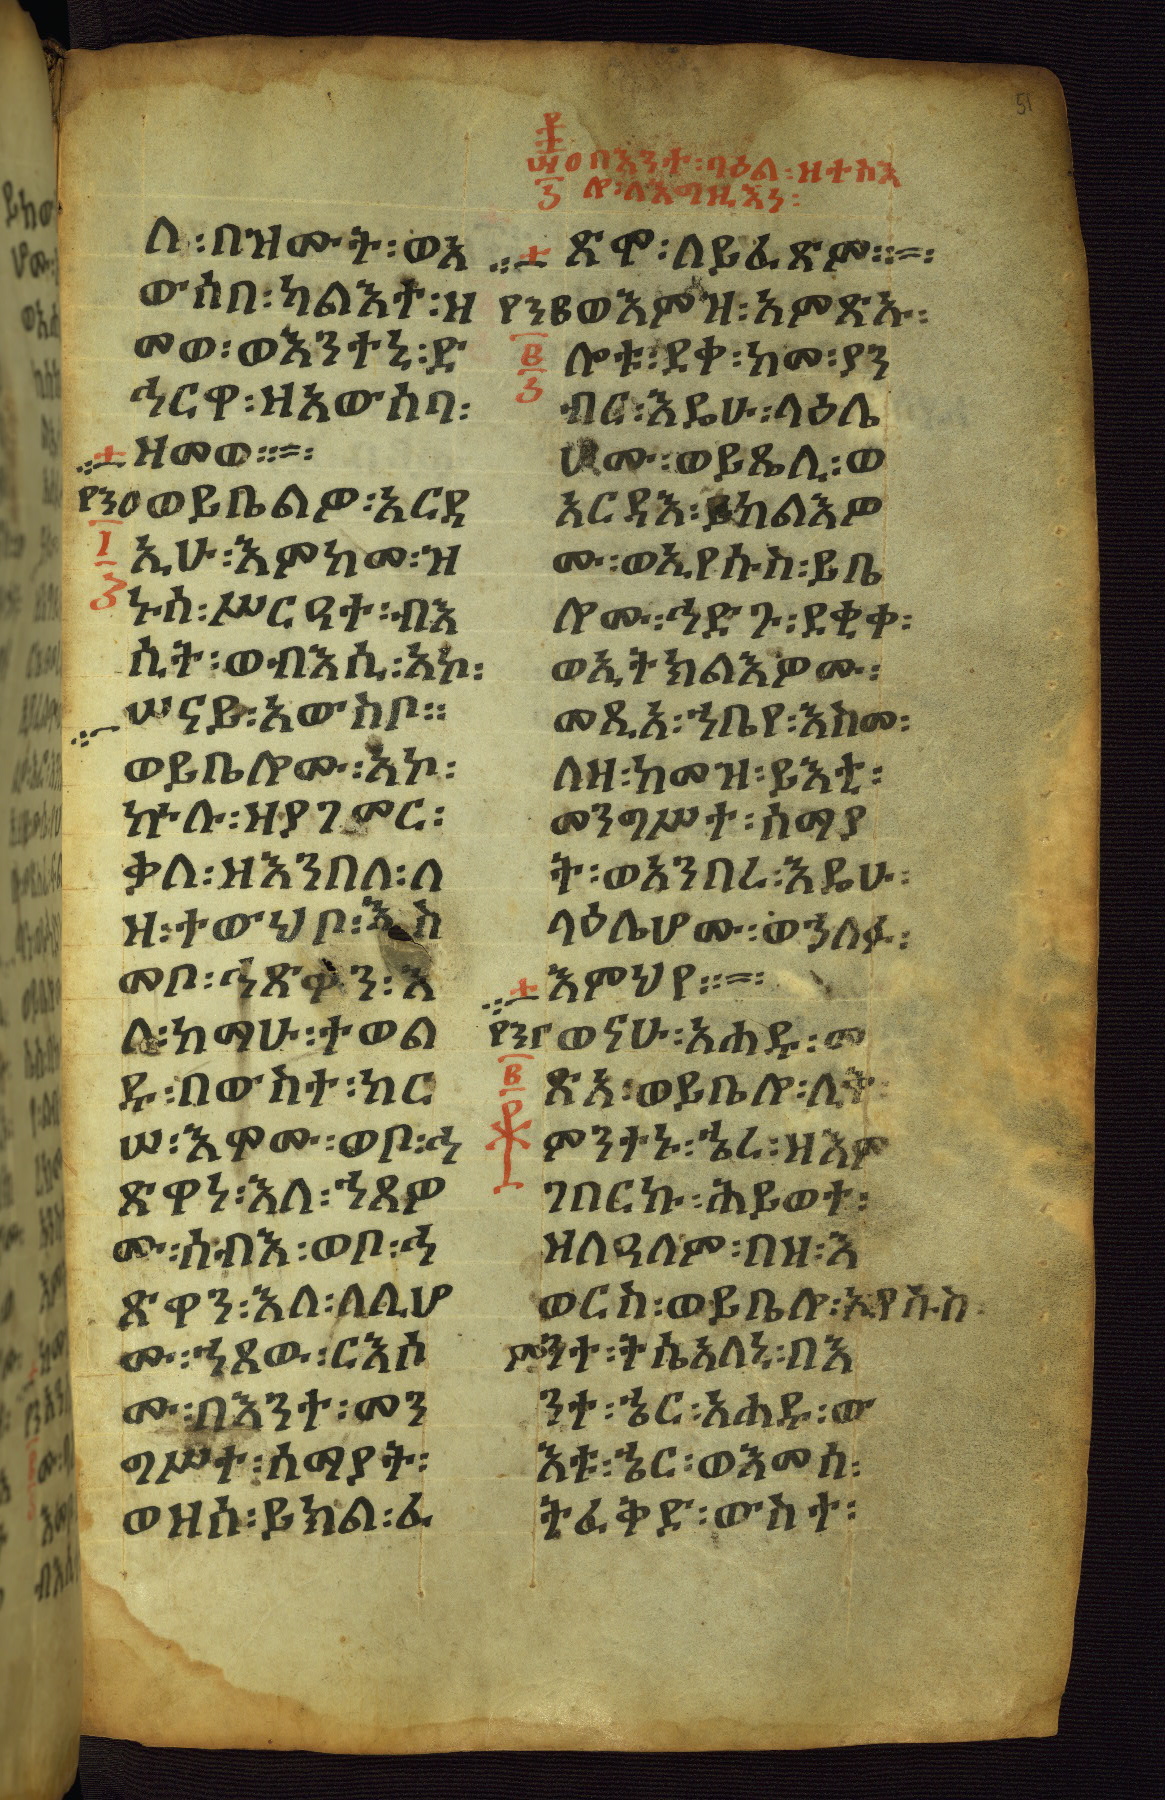 51
በእንተ፡ባዕል፡ዘተስእ
ሎ፡ለእግዚእነ፡
ለ፡በዝሙት፡ወእ
ውሰበ፡ካልእተ፡ዘ
መወ፡ወእንተኒ፡ድ
ኅርዋ፡ዘአውሰባ፡
ዘመወ።=፡
ወይቤልዎ፡አርዳ
ኢሁ፡እምከመ፡ዝ
ኑሰ፡ሥርዓተ፡ብእ
ሲት፡ወብእሲ፡አኮ፡
ሠናይ፡አውስቦ።
ወይቤሎሙ፡አኮ፡
ኵሉ፡ዝያገመር፡
ቃለ፡ዘእንበለ፡ለ
ዘ፡ተውህቦ፡እስ
መቦ፡ኅጽዋን፡እ
ለ፡ከማሁ፡ተወል
ዱ፡በውስተ፡ከር
ሠ፡እሞሙ፡ወቦ፡ኅ
ጽዋነ፡እለ፡ኀጸዎ
ሙ፡ሰብእ፡ወቦ፡ኅ
ጽዋን፡እለ፡ለሊሆ
ሙ፡ኀጸው፡ርእሰ
ሙ፡በእንተ፡መን
ግሥተ፡ሰማያት፡
ወዘሰ፡ይክል፡ፈ
ጽሞ፡ለይፈጽም።=፡
ወእምዝ፡አምጽኡ፡
ሎቱ፡ደቀ፡ከመ፡ያን
ብር፡እዴሁ፡ላዕሌ
ሆሙ፡ወይጼሊ፡ወ
አርዳእ፡ይከልእዎ
ሙ፡ወኢየሱስ፡ይቤ
ሎሙ፡ኅድጉ፡ደቂቀ፡
ወኢትክልእዎሙ፡
መጺአ፡ኀቤየ፡እስመ፡
ለዘ፡ከመዝ፡ይእቲ፡
መንግሥተ፡ሰማያ
ት፡ወአንበረ፡እዴሁ፡
ላዕሌሆሙ፡ወኀለፈ፡
እምህየ።=፡
ወናሁ፡አሐዱ፡መ
ጽአ፡ወይቤሎ፡ሊቅ
ምንተኑ፡ኄረ፡ዘእም
ገበርኩ፡ሕይወተ፡
ዘለዓለም፡በዘ፡እ
ወርስ፡ወይቤሎ፡ኢየሱስ፡
ምንተ፡ትሴአለኒ፡በእ
ንተ፡ኄር፡አሐዱ፡ው
እቱ፡ኄር፡ወእመሰ፡
ትፈቅድ፡ውስተ፡